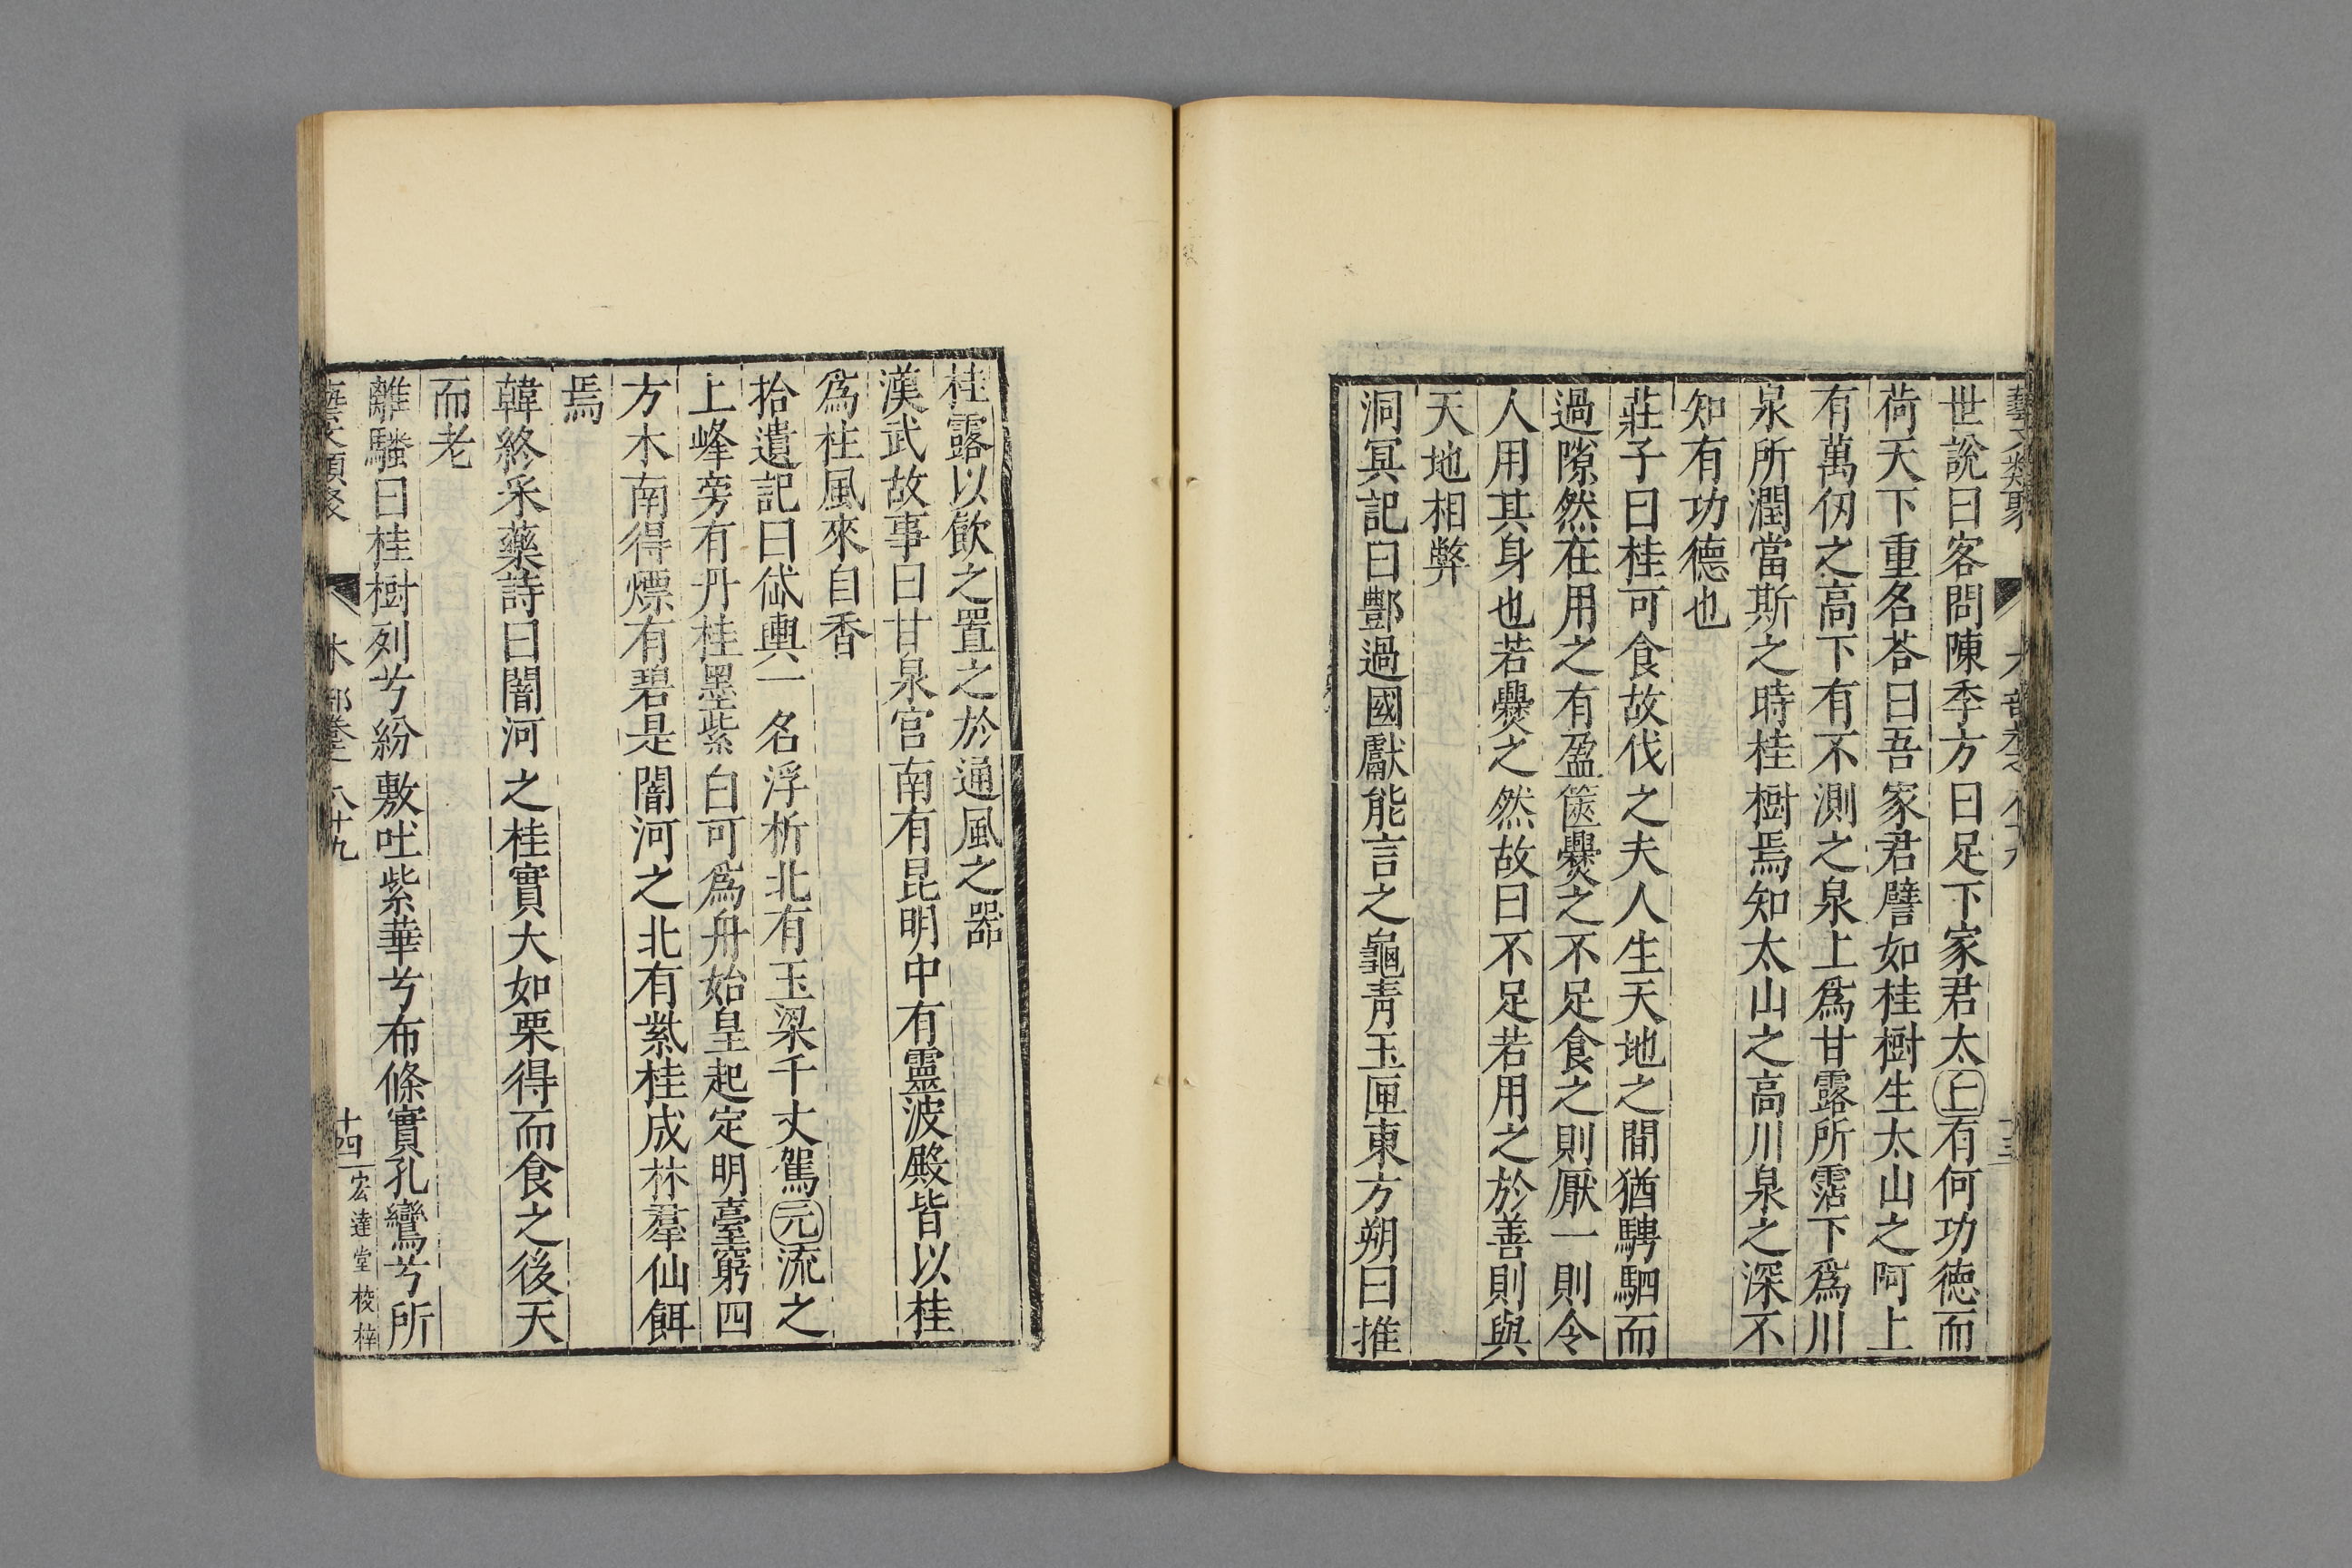 藝文類聚 木部卷 八十九 十三
世說曰客問陳季方曰足下家君太上有何功德而
荷天下重名荅曰吾家君譬如桂樹生太山之阿上
有萬仞之高下有不測之泉上爲甘露所霑下爲川
泉所潤當斯之時桂樹焉知太山之高川泉之深不
知有功德也
莊子曰桂可食故伐之夫人生天地之間猶騁駟而
過隙然在用之有盈篋爨之不足食之則厭一則令
人用其身也若爨之然故曰不足若用之於善則與
天地相弊
洞冥記曰酆過國獻能言之龜靑玉匣東方朔曰推
桂露以飲之置之於通風之器
漢武故事曰甘泉宮南有昆明中有靈波殿皆以桂
爲柱風來自香
拾遺記曰岱輿一名浮析北有玉梁千丈駕元流之
上峰旁有丹桂墨紫白可爲舟始皇起定明臺窮四
方木南得煙有碧是闇河之北有紫桂成林羣仙餌
焉
韓終采藥詩曰闇河之桂實大如栗得而食之後天
而老
離騷曰桂樹列兮紛敷吐紫華兮布條實孔鸞兮所
藝文類聚 木部卷 八十九 十四 宏達堂校梓